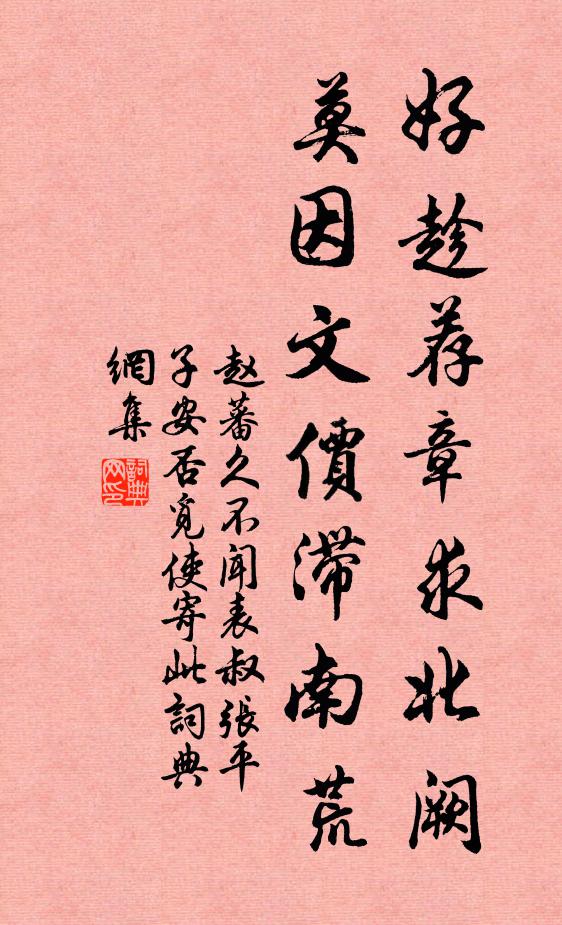 好趁荐章求北阙
莫因文價滞南荒
赵蕃久不闻表叔張平
子安否覓使寄此詞典
網集
詞典網印